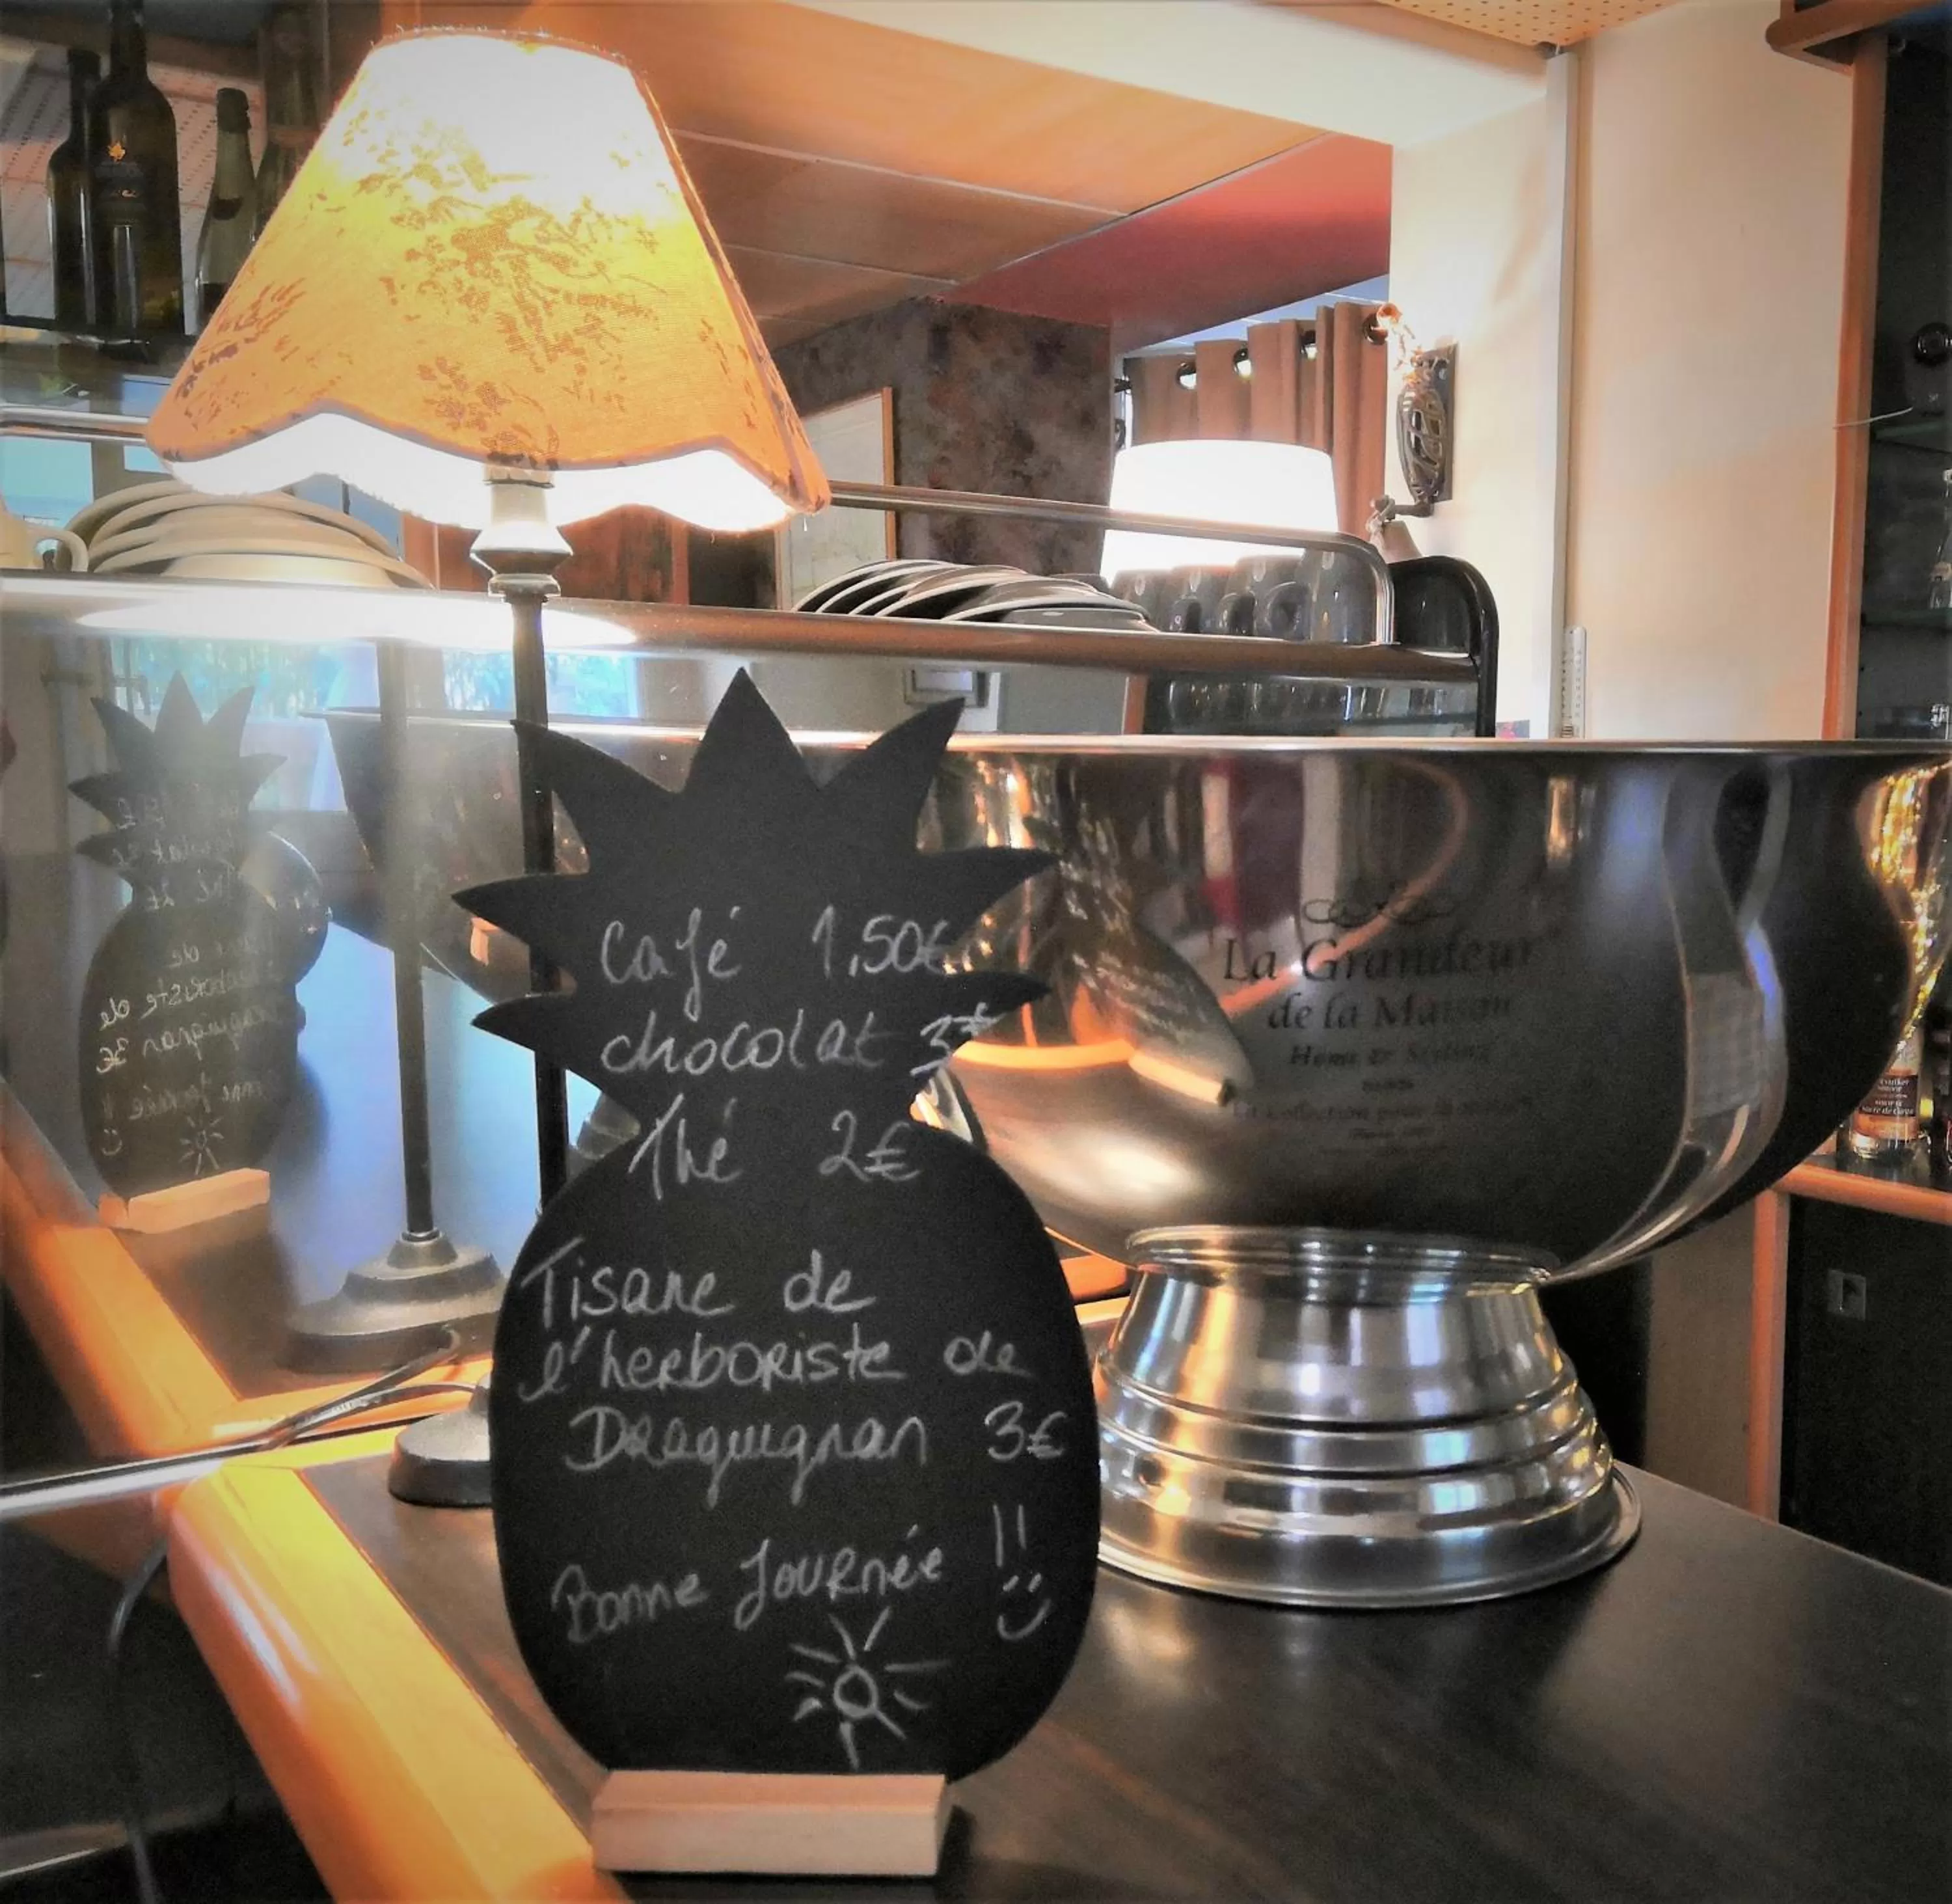 Café 1,50€
chocolat 3€
Thé 2€
Tisane de
l'herboriste de
Draguignan 3€
Bonne Journée !!
La Grandeur
de la Maison
Home & Styling
PARIS